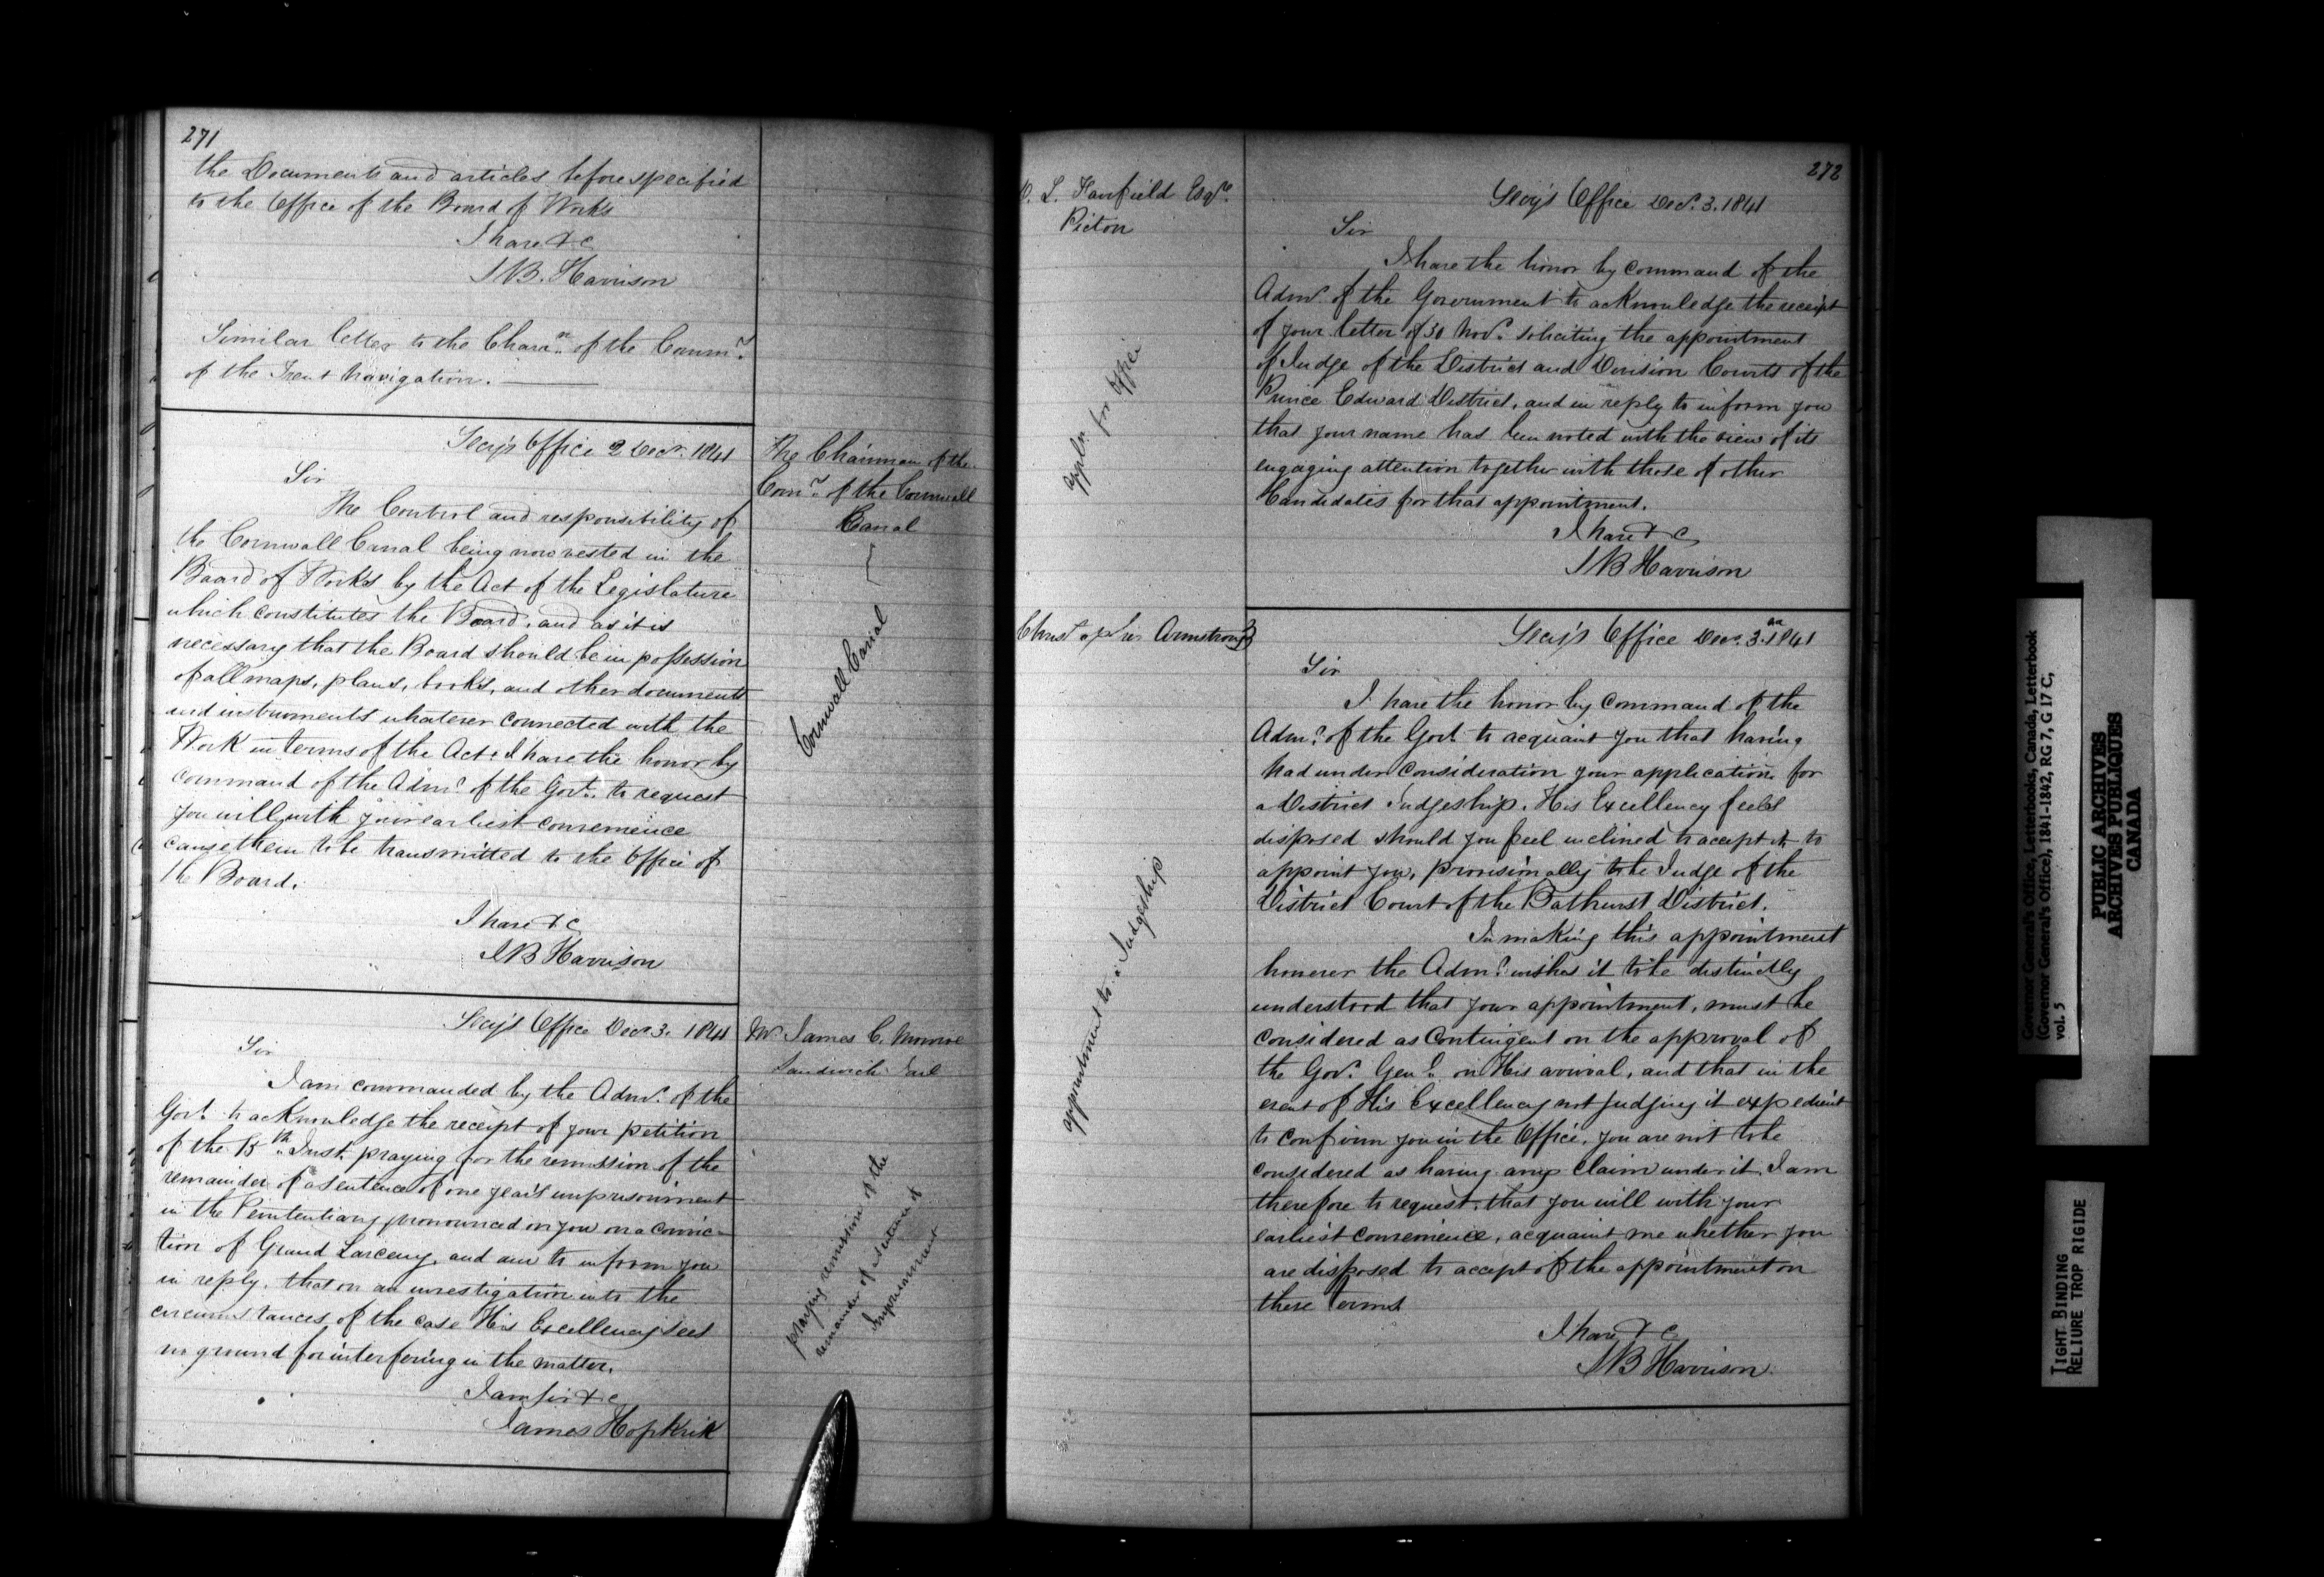 271
the Documents and articles before specified
to the Office of the Board of Works
I have &c
S B. Harrison
Similar letter to the Chairn. of the Commrs.
of the Trent Navigation.
Secy's Office 2 Decr. 1841
The Chairman of the
Comrs. of the Cornwall
Canal
Cornwall Canal
Sir
The Control and responsibility of
the Cornwall Canal being now vested in the
Board of Works by the Act of the Legislature
which constitutes the Board, and as it is
necessary that the Board should be in possession
of all maps, plans, books, and other documents
and instruments whatever connected with the
Work in terms of the Act, I have the honor by
command of the Admr. of the Govt. to request
you will with your earliest convenience
cause them to be transmitted to the Office of
the Board.
I have &c
S B Harrison
Secy's Office Decr 3. 1841
Mr James C. Monroe
Sandwich Jail
praying remission of the
remainder of a sentence of
Imprisonment
Sir
I am commanded by the Admr. of the
Govt. to acknowledge the receipt of your petition
of the 15th Inst. praying for the remission of the
remainder of a sentence of one year's imprisonment
in the Penitentiary pronounced on you on a convic-
tion of Grand Larceny, and am to inform you
in reply, that on an investigation into the
circumstances of the case His Excellency sees
no ground for interfering in the matter.
I am Sir &c
James Hopkirk
272
L. Fairfield Esqre.
Picton
appln. for office
Secy's Office Decr. 3. 1841
Sir
I have the honor by Command of the
Admr. of the Government to acknowledge the receipt
of your letter of 30 Novr. soliciting the appointment
of Judge of the District and Division Courts of the
Prince Edward District, and in reply to inform you
that your name has been noted with the view of its
engaging attention together with those of other
Candidates for that appointment.
I have &c
S B Harrison
Armstrong
appointment to a Judgeship
Secy's Office Decr. 3. 1841
Sir
I have the honor by Command of the
Admr. of the Govt. to acquaint you that having
had under Consideration your application for
a District Judgeship, His Excellency feels
disposed should you feel inclined to accept it, to
appoint you, provisionally to be Judge of the
District Court of the Bathurst District.
In making this appointment
however the Admr. wishes it to be distinctly
understood that your appointment, must be
considered as Contingent on the approval of
the Govr. Genl. on His arrival, and that in the
event of His Excellency not judging it expedient
to confirm you in the Office, you are not to be
considered as having any claim under it. I am
therefore to request, that you will with your
earliest convenience, acquaint me whether you
are disposed to accept of the appointment on
these terms
I have &c
S B Harrison
Governor General's Office, Letterbooks, Canada, Letterbook
(Governor General's Office), 1841-1842, RG 7, G 17 C,
vol. 5
PUBLIC ARCHIVES
ARCHIVES PUBLIQUES
CANADA
TIGHT BINDING
RELIURE TROP RIGIDE